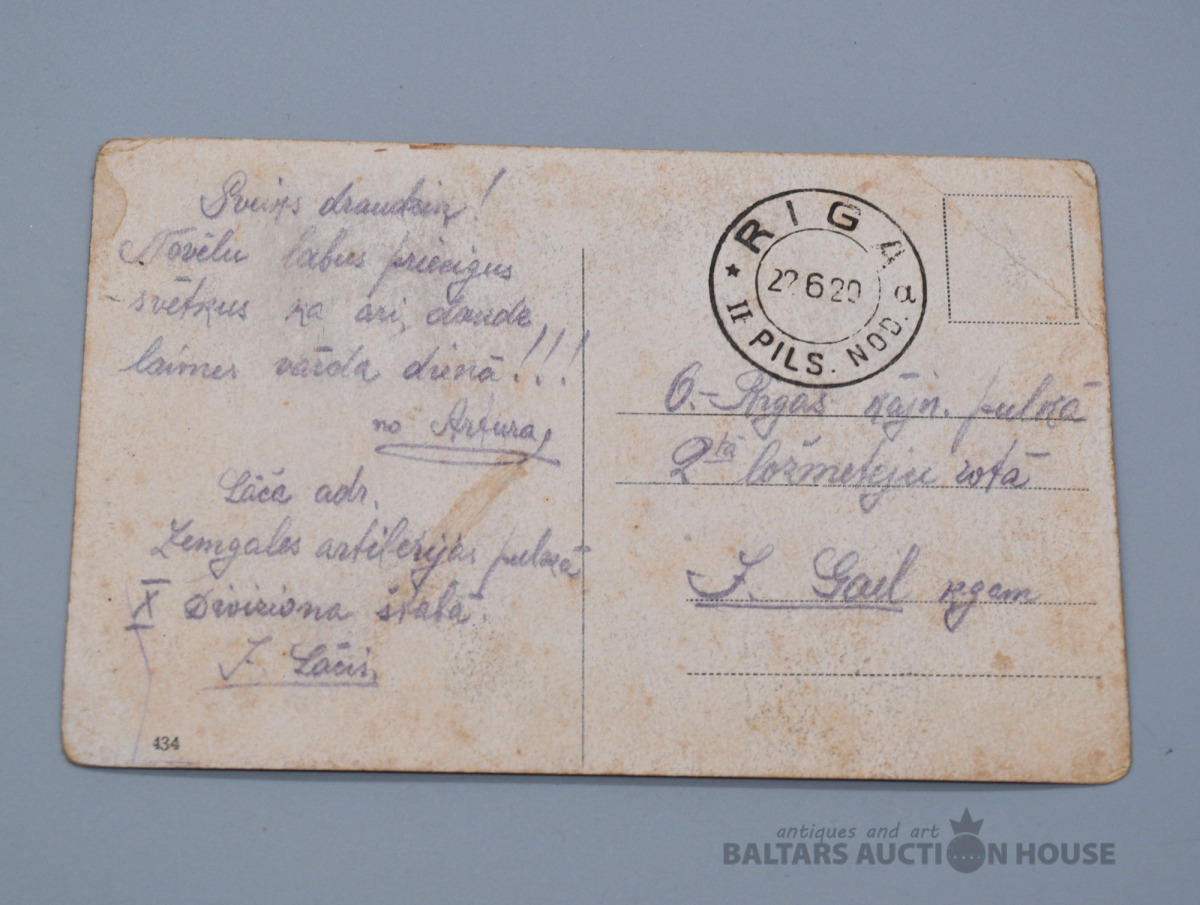 Sveiks draudziņ!
Novēlu labus priecīgus
svētkus kā arī, daudz
laimes vārda dienā!!!
no Artura,
Lāča adr.
Zemgales artilerijas pulkā
X Diviziona štābā.
J. Lācis,
434
RIGA a
22 6 20
★ II PILS. NOD.
6.- Rīgas kājn. pulkā
2trā ložmetēju rotā
J. Gail kgam
antiques and art
BALTARS AUCTION HOUSE